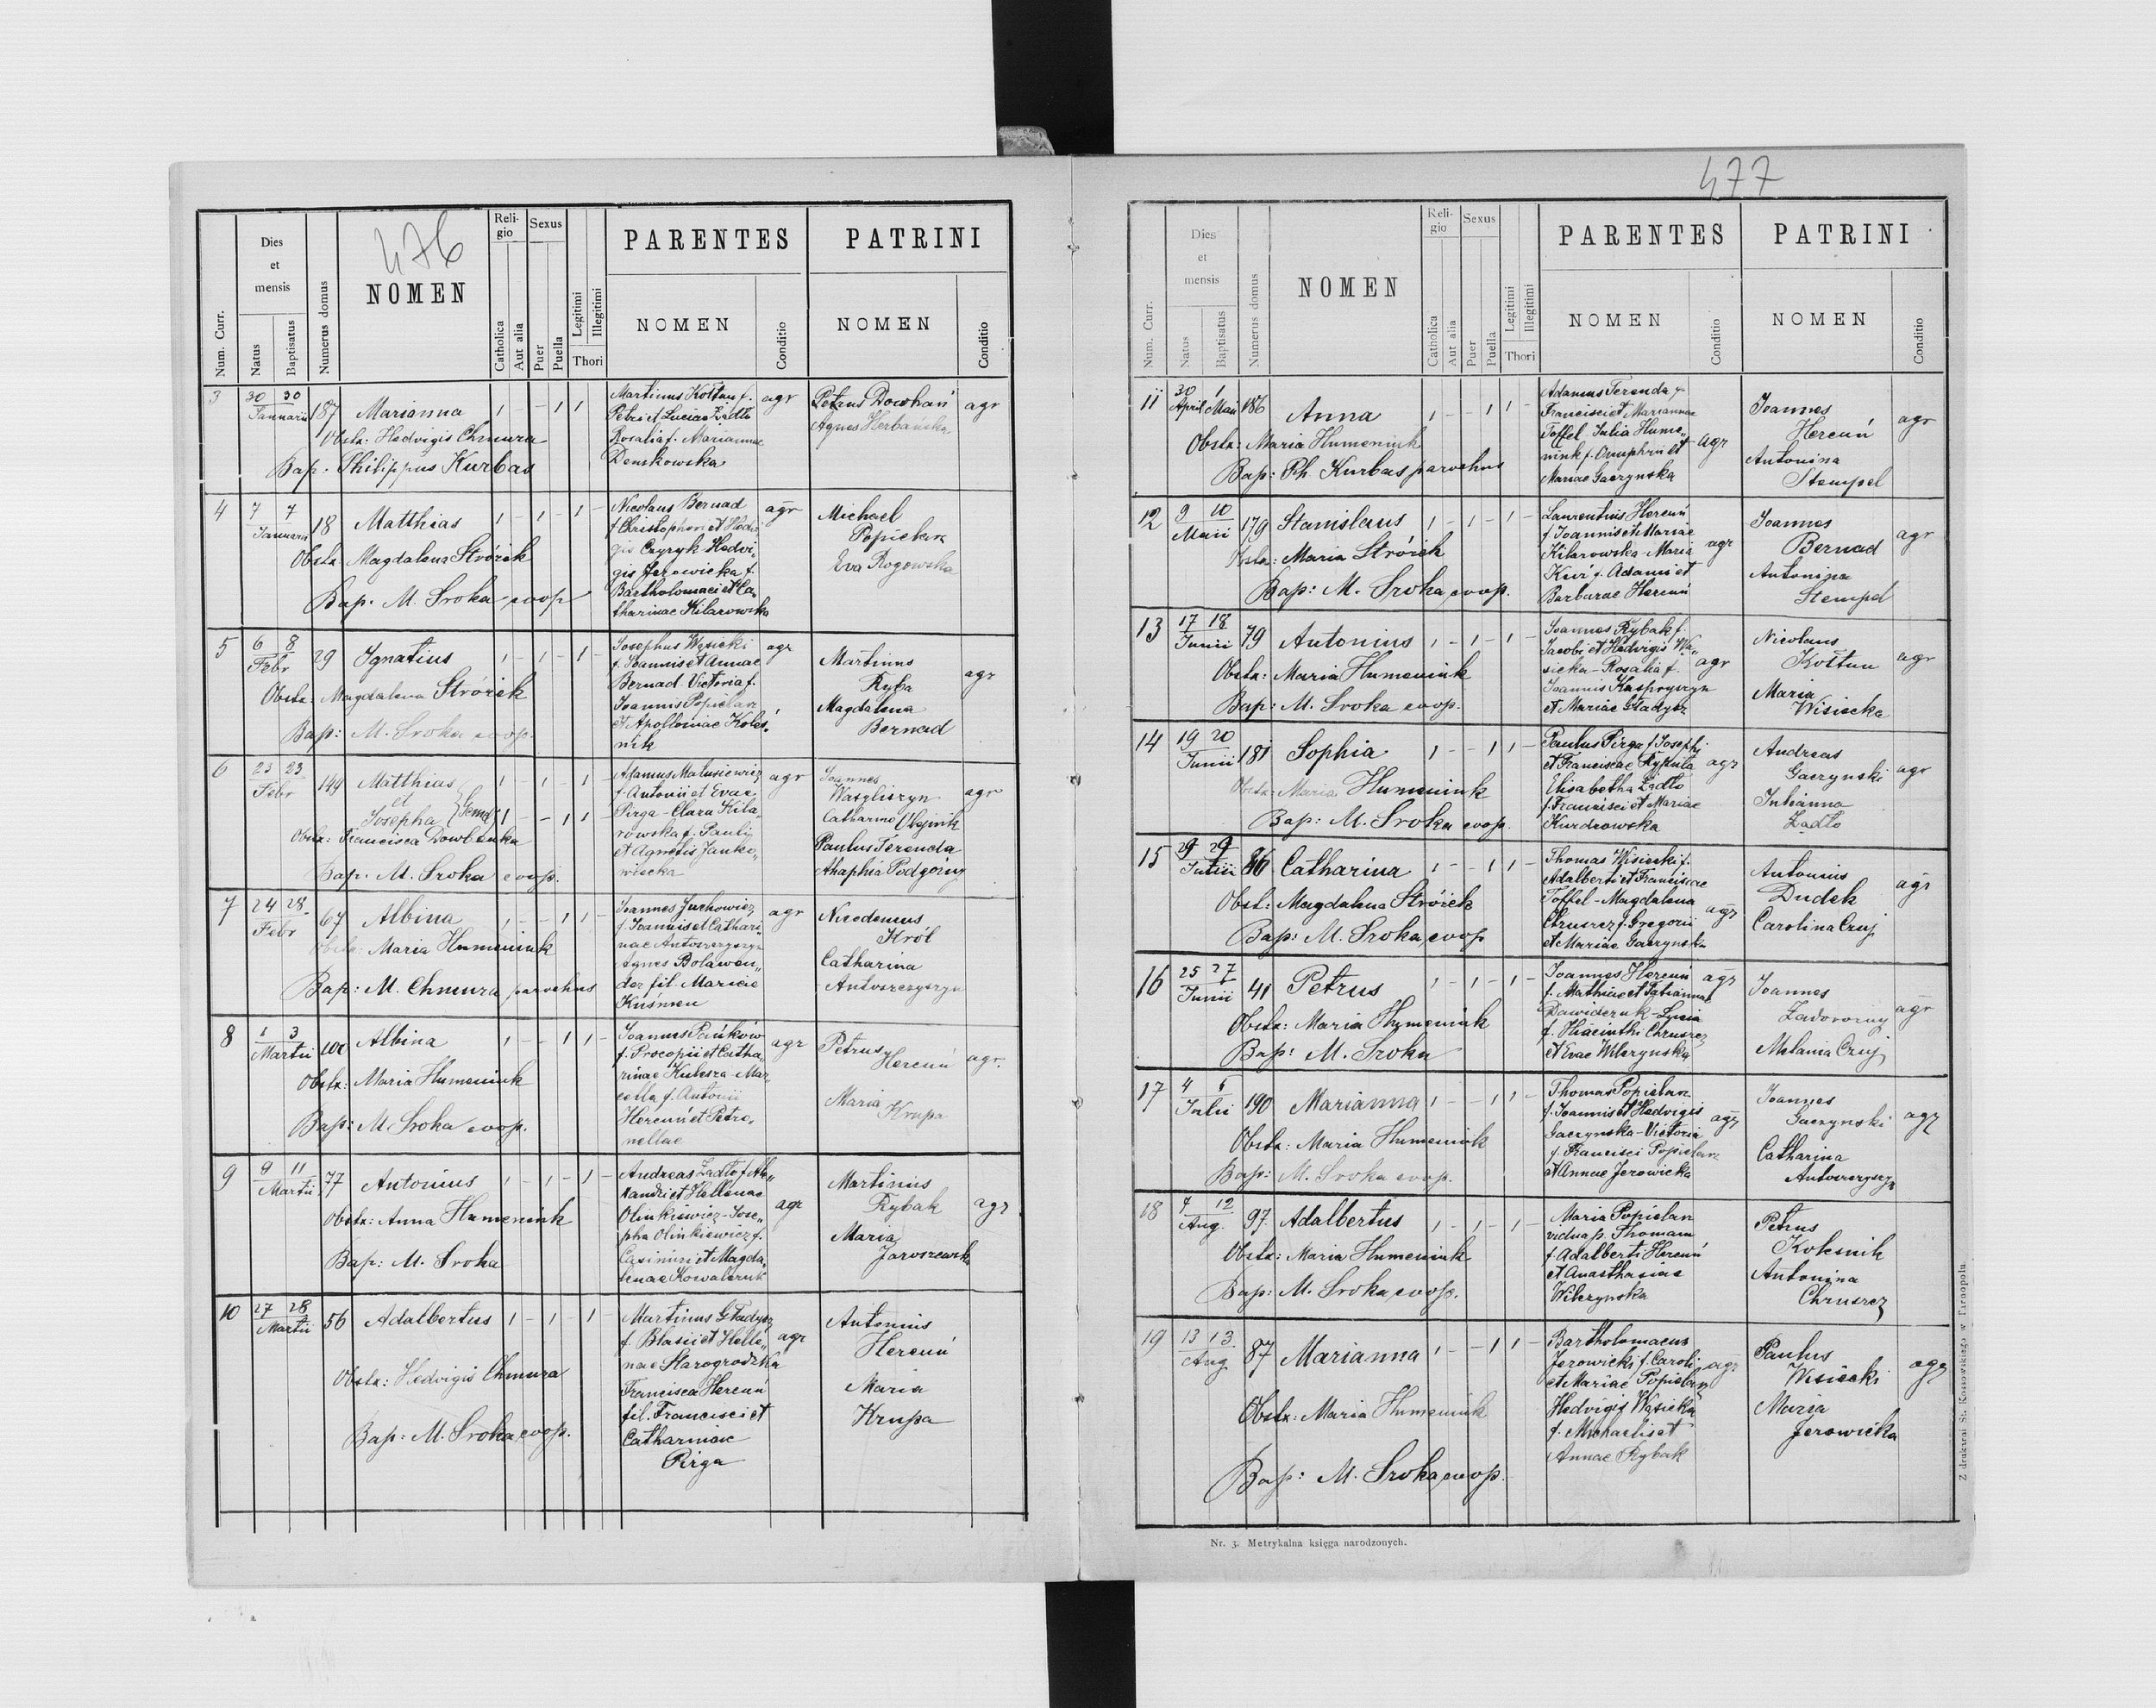 476
Num. Curr.
Dies
et
mensis
Natus
Baptisatus
Numerus domus
NOMEN
Reli-
gio
Catholica
Aut alia
Sexus
Puer
Puella
Legitimi
Illegitimi
Thori
PARENTES
NOMEN
Conditio
PATRINI
NOMEN
Conditio
3 30 30 Januarii 187 Marianna 1 - - 1 1
Obstx: Hedvigis Chmura
Bap: Philippus Kurbas
Martinus Kołtun f. agr
Petri et Luciae Żądło
Rosalia f. Mariannae
Denskowska
Petrus Dowhań agr
Agnes Herbańska
4 7 7 Januarii 18 Matthias 1 - 1 - 1 -
Obstx Magdalena Strózek
Bap. M. Sroka coop
Nicolaus Bernad agr
f. Christophori et Hedvi„
gis Czyzyk-Hedvi„
gis Jerowicka f.
Bartholomaei et Ca„
tharinae Kilarowska
Michael
Popielarz
Eva Rogowska
5 6 8 Febr 29 Ignatius 1 - 1 - 1 -
Obstx: Magdalena Strózek
Bap: M. Sroka coop.
Josephus Wąsicki agr
f. Joannis et Annae
Bernad-Victoria f.
Joannis Popielarz
et Apolloniae Koles„
nik
Martinus
Ryba agr
Magdalena
Bernad
6 23 23 Febr 149 Matthias 1 - 1 - 1 -
et
Josepha } Gemelli 1 - - 1 1
Obstx: Francisca Dowbenka
Bap. M. Sroka coop.
Adamus Matusiewicz agr
f. Antonii et Evae
Pirga-Clara Kila„
rowska f. Pauli
et Agnetis Janko„
wiecka
Joannes
Wasyliszyn agr
Catharina Olejnik
Paulus Ferenda
Ahaphia Podgórny
7 24 28 Febr 67 Albina 1 - - 1 1 -
Obstx: Maria Humeniuk
Bap: M. Chmura parochus
Joannes Juchowicz agr
f. Joannis et Cathari„
nae Antoszczyszyn
Agnes Bolawen„
der fil. Mariae
Kuśmen
Nicodemus
Król
Catharina
Antoszczyszyn
8 1 3 Martii Albina 1 - - 1 1 -
Obstx: Maria Humeniuk
Bap: M. Sroka coop.
Joannes Pańków agr
f. Procopii et Catha„
rinae Kulesza-Mar„
cella f. Antonii
Hercuń et Petro„
nellae
Petrus
Hercuń agr.
Maria
Krupa
9 9 11 Martii 77 Antonius 1 - 1 - 1 -
Obstx: Anna Humeniuk
Bap: M. Sroka
Andreas Żądło f. Ale„
xandri et Hellenae
Olinkiewicz-Jose„ agr
pha Olinkiewicz f.
Casimiri et Magda„
lenae Kowalczuk
Martinus
Rybak agr
Maria
Jaroszewska
10 27 28 Martii 56 Adalbertus 1 - 1 - 1 -
Obstx: Hedvigis Chmura
Bap: M. Sroka, coop.
Martinus Gładysz
f. Blasii et Helle„ agr
nae Starogrodzka
Francisca Hercuń
fil. Francisci et
Catharinae
Pirga
Antonius
Hercuń
Maria
Krupa
477
Num. Curr.
Dies
et
mensis
Natus
Baptisatus
Numerus domus
NOMEN
Reli-
gio
Catholica
Aut alia
Sexus
Puer
Puella
Legitimi
Illegitimi
Thori
PARENTES
NOMEN
Conditio
PATRINI
NOMEN
Conditio
11 30 April 1 Maii 186 Anna 1 - - 1 1 -
Obstx: Maria Humeniuk
Bap: Ph. Kurbas parochus
Adamus Ferenda f.
Francisci et Mariannae
Toffel-Julia Hume„
niuk f. Onuphrii et agr
Mariae Gaczynska
Joannes
Hercuń agr
Antonina
Stempel
12 9 10 Maii 179 Stanislaus 1 - 1 - 1 -
Obstx: Maria Strózek
Bap: M. Sroka, coop.
Laurentius Hercuń
f. Joannis et Mariae
Kilarowska-Maria agr
f. Adami et
Barbarae Hercuń
Joannes
Bernad agr
Antonina
Stempel
13 17 18 Junii 79 Antonius 1 - 1 - 1 -
Obstx: Maria Humeniuk
Bap: M. Sroka coop.
Joannes Rybak f.
Jacobi et Hedvigis Wą„
sicka-Rosalia f. agr
Joannis Kaspryszyn
et Mariae Gładysz
Nicolaus
Kołtun agr
Maria
Wisiecka
14 19 20 Junii 181 Sophia 1 - - 1 1 -
Obstx: Maria Humeniuk
Bap: M. Sroka coop.
Paulus Pirga f. Josephi
et Franciscae agr
Elisabetha Żądło
f. Francisci et Mariae
Kurdrowska
Andreas
Gaczynski agr
Julianna
Żądło
15 29 29 86 Catharina 1 - - 1 1 -
Obst: Magdalena Strózek
Bap: M. Sroka, coop
Thomas Wisiecki f.
Adalberti et Franciscae
Toffel-Magdalena agr
Chruszcz f. Gregorii
et Mariae Gaczynska
Antonius
Dudek agr
Carolina Czuj
16 25 27 Junii 41 Petrus 1 - 1 - 1 -
Obstx: Maria Humeniuk
Bap: M. Sroka
Joannes Hercuń agr
f. Mathiae et Tatiannae
Dawidczuk-Lucia
f. Hiacinthi Chruszcz
et Evae Wilczynska
Joannes
Zadorozny agr
Melania Czuj
17 4 6 Julii 190 Marianna 1 - - 1 1 -
Obstx: Maria Humeniuk
Bap: M. Sroka coop.
Thomas Popielarz
f. Joannis et Hedvigis
Gaczynska-Victoria agr
f. Francisci Popielarz
et Annae Jerowicka
Joannes
Gaczynski agr
Catharina
Antoszczyszyn
18 7 12 Aug. 97 Adalbertus 1 - 1 - 1 -
Obstx: Maria Humeniuk
Bap: M. Sroka coop.
Maria Popielarz
vidua p. Thomam
f. Adalberti Hercuń
et Anasthasiae
Wilczynska
Petrus
Kolesnik
Antonina
Chruszcz
19 13 13 Aug 87 Marianna 1 - - 1 1 -
Obstx: Maria Humeniuk
Bap: M. Sroka, coop.
Bartholomaeus
Jerowicki f. Caroli agr
et Mariae Popielarz
Hedvigis Wąsicka
f. Michaelis et
Annae Rybak
Paulus
Wisiecki agr
Maria
Jerowicka
Nr. 3. Metrykalna księga narodzonych.
Z drukarni St. Kossowskiego w Tarnopolu.